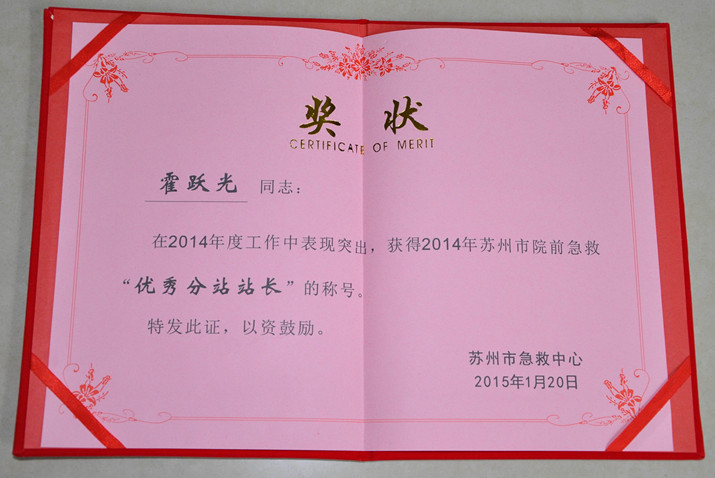 奖状
CERTIFICATE OF MERIT
霍跃光 同志：
在2014年度工作中表现突出，获得2014年苏州市院前急救
“优秀分站站长”的称号。
特发此证，以资鼓励。
苏州市急救中心
2015年1月20日